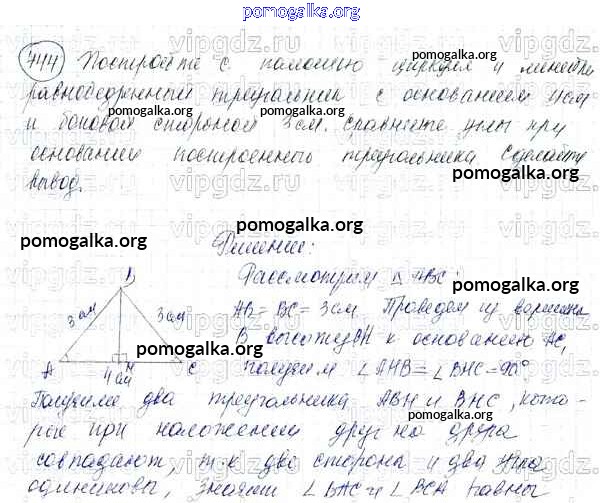 pomogalka.org
744 Постройте с помощью циркуля и линейки
pomogalka.org
равнобедренный треугольник с основанием 4 см
pomogalka.org
pomogalka.org
и боковой стороной 3 см. Сравните углы при
основании построенного треугольника. Сделайте
вывод.
pomogalka.org
pomogalka.org
Решение:
Рассмотрим △ ABC:
pomogalka.org
B
3 см 3 см
AB = BC = 3 см. Проведем из вершины
B высоту BH к основанию AC,
pomogalka.org
A H C
4 см
получим ∠ AHB = ∠ BHC = 90°
pomogalka.org
Получили два треугольника ABH и BHC, кото-
рые при наложении друг на друга
совпадают, т.к две стороны и два угла
одинаковы, значит ∠ BAC и ∠ BCA равны